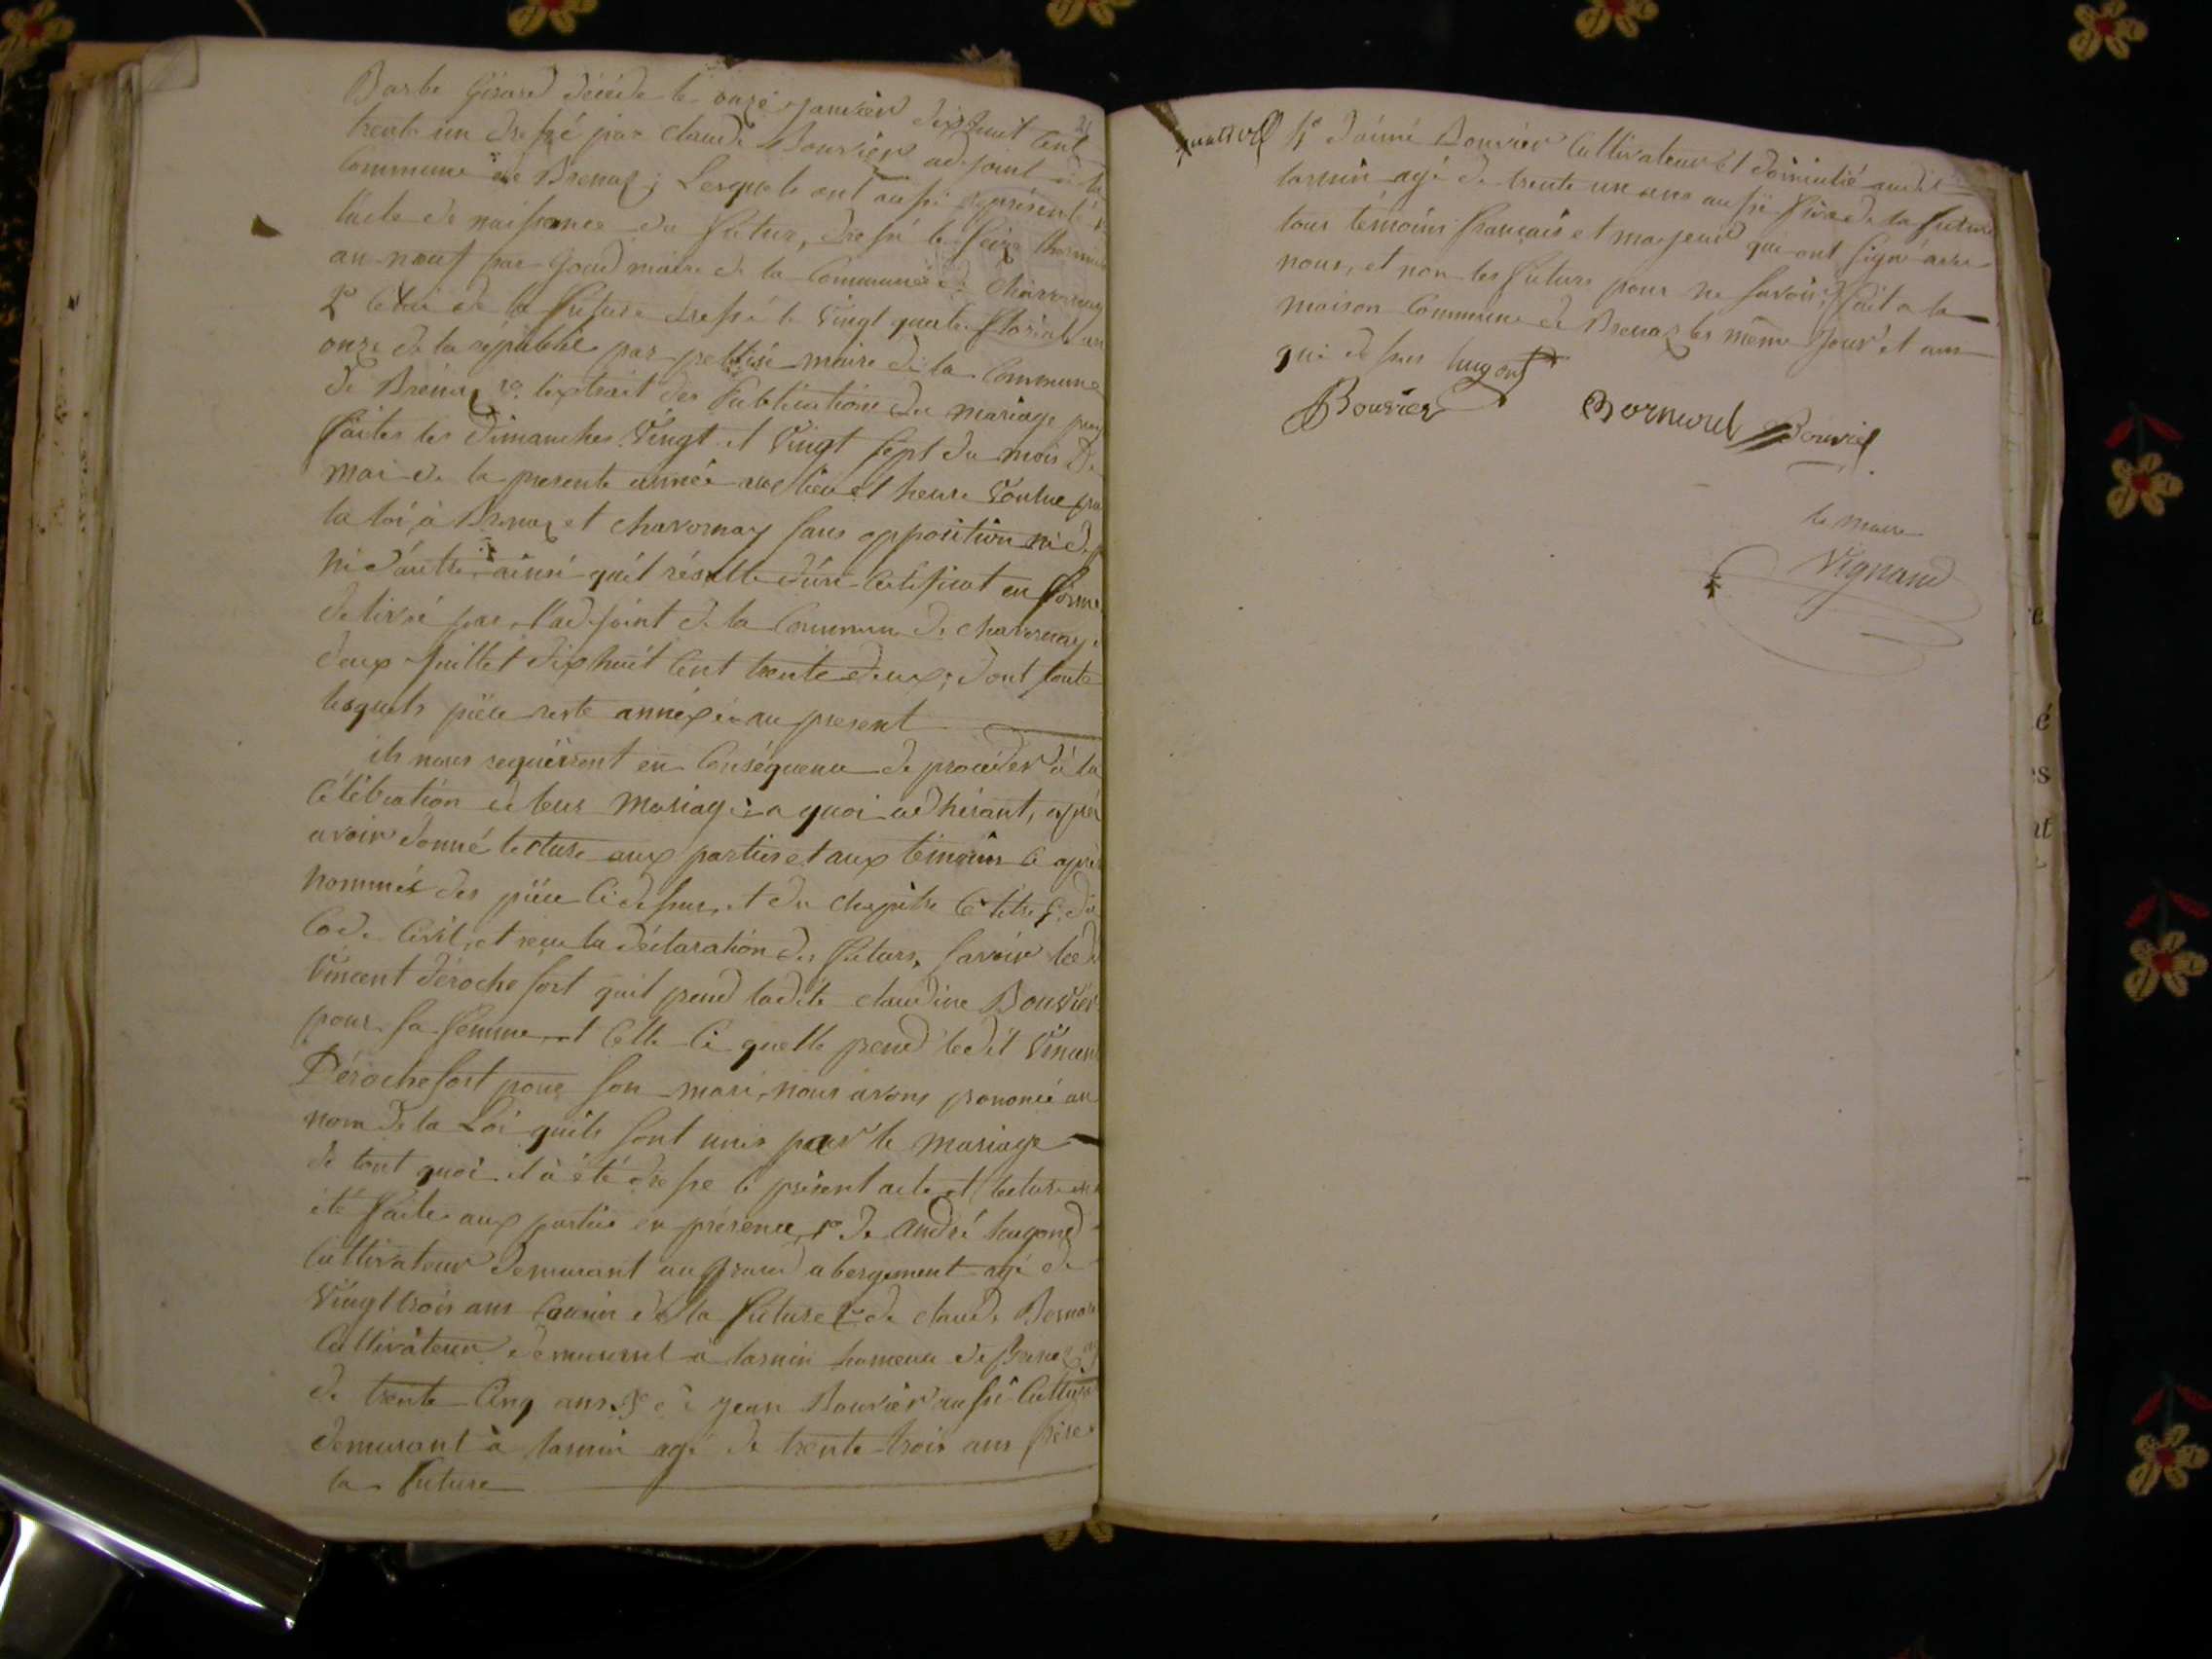 Barbe Girard décédé le onze janvier dixhuit Cent
trente un dressé par claude Bouvier adejoint à la
Commune de Brenaz; Lesquels ont aussi représenté
lacte de naissance du futur, dressé le seize
an neuf par Goud maire de la Commune de Chavornay
2° Celui de la future dressé le Vingt quatre floréal an
onze de la républié par maire de la Commune
de Brénaz lextrait des Publications du mariage
faites les dimanches Vingt et Vingt sept du mois De
mai de la presente année aux lieu et heure Voulue
la loi, à Brenaz et chavornay sans opposition ni de
ni d'autre, ainsi quil résulte d'un Certificat en forme
delivré par l'adejoint de la Commune de chavornay
deux juillet dixhuit Cent trente deux; dont toute
lesquels pièce reste annéxée au present
ils nous requierent en Conséquence de proceder à la
Célébration de leur Mariage a quoi adhérant, après
avoir donné lecture aux parties et aux témoins Ci après
nommés des pièce Ci dessus, et du chapitre 6 titre 5 du
Code Civil, et reçu la déclaration des futurs, savoir led
Vincent déroche fort quil prend ladite claudine Bouvier
pour sa femme et Celle Ci quelle prend ledit Vincent
Dérochefort pour son mari, nous avons prononcé au
nom de la Loi quils sont unis par le mariage
de tout quoi il à été dressé le présent acte et lecture en
été faite aux parties en présence 1° de andré hugond
Cultivateur demeurant au grand abergement agé de
Vingt trois ans Cousin de la future 2° de claude Bernard
Cultivateur demeurant à tarnin hameau de Brenaz
de trente Cinq ans 3° de jean Bouvier aussi Cultiva
demeurant à tarnin agé de trente trois ans frère
la future
4° d'aimé Bouvier Cultivateur et domicilié audit
tarnin agé de trente un ans aussi frère de la future
tous témoins français et majeurs qui ont signé avec
nous, et non les futurs pour ne savoir, fait a la
maison Commune de Brenaz les même jour et an
que dessus hugond
Bouvier Bornard Bouvier
le maire
Vignand